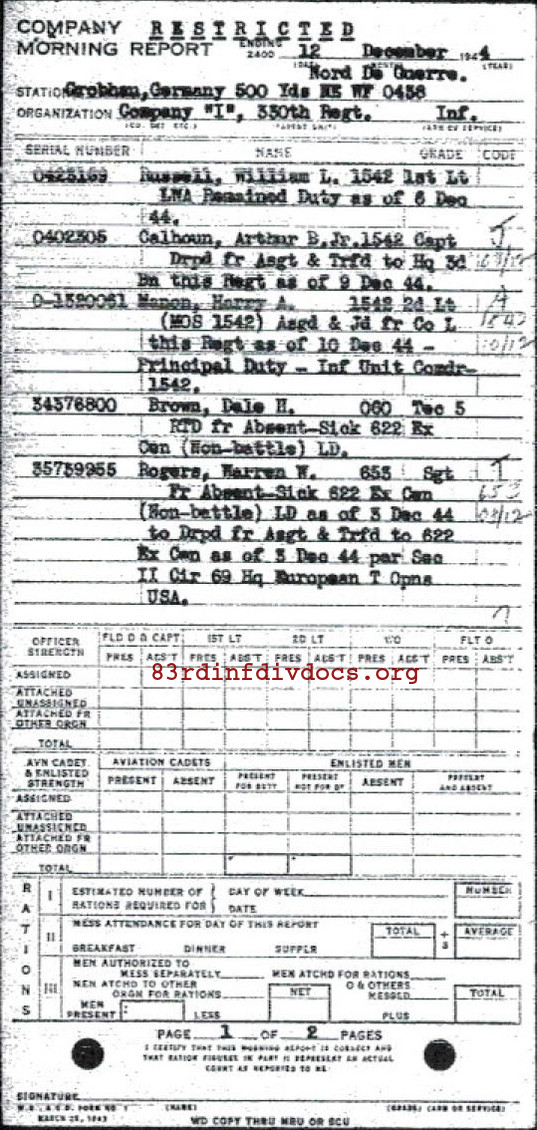 COMPANY RESTRICTED
MORNING REPORT ENDING 2400 12 December 1944
(DAY) (MONTH) (YEAR)
Nord De Guerre.
STATION Grobhau, Germany 500 Yds NE WF 0438
ORGANIZATION Company "I", 330th Regt. Inf.
(CO. DET. ETC.) (PARENT UNIT) (ARM OR SERVICE)
SERIAL NUMBER NAME GRADE CODE
0425169 Russell, William L. 1542 1st Lt
LWA Remained Duty as of 6 Dec
44.
0402305 Calhoun, Arthur B,Jr.1542 Capt
Drpd fr Asgt & Trfd to Hq 3d
Bn this Regt as of 9 Dec 44.
O-1320061 Manon, Harry A. 1542 2d Lt
(MOS 1542) Asgd & Jd fr Co L
this Regt as of 10 Dec 44 -
Principal Duty - Inf Unit Comdr-
1542.
34376800 Brown, Dale H. 060 Tec 5
RTD fr Absent-Sick 622 Ex
Cen (Non-battle) LD.
35739955 Rogers, Warren W. 653 Sgt
Fr Absent-Sick 622 Ex Cen
(Non-battle) LD as of 3 Dec 44
to Drpd fr Asgt & Trfd to 622
Ex Cen as of 3 Dec 44 par Sec
II Cir 69 Hq European T Opns
USA.
OFFICER STRENGTH FLD O & CAPT 1ST LT 2D LT WO FLT O
PRES ABS'T PRES ABS'T PRES ABS'T PRES ABS'T PRES ABS'T
ASSIGNED
83rdinfdivdocs.org
ATTACHED UNASSIGNED
ATTACHED FR OTHER ORGN
TOTAL
AVN CADET & ENLISTED STRENGTH AVIATION CADETS ENLISTED MEN
PRESENT ABSENT PRESENT FOR DUTY PRESENT NOT FOR DY ABSENT PRESENT AND ABSENT
ASSIGNED
ATTACHED UNASSIGNED
ATTACHED FR OTHER ORGN
TOTAL
RATIONS
I ESTIMATED NUMBER OF RATIONS REQUIRED FOR DAY OF WEEK DATE NUMBER
II MESS ATTENDANCE FOR DAY OF THIS REPORT TOTAL ÷ 3 AVERAGE
BREAKFAST DINNER SUPPER
III MEN AUTHORIZED TO MESS SEPARATELY MEN ATCHD FOR RATIONS
MEN ATCHD TO OTHER ORGN FOR RATIONS NET O & OTHERS MESSED TOTAL
MEN PRESENT LESS PLUS
PAGE 1 OF 2 PAGES
I CERTIFY THAT THIS MORNING REPORT IS CORRECT AND
THAT RATION FIGURES IN PART II REPRESENT AN ACTUAL
COUNT AS REPORTED TO ME
SIGNATURE
W.D., A.G.O. FORM NO. 1 (NAME) (GRADE) (ARM OR SERVICE)
MARCH 25, 1943 WD COPY THRU MRU OR SCU